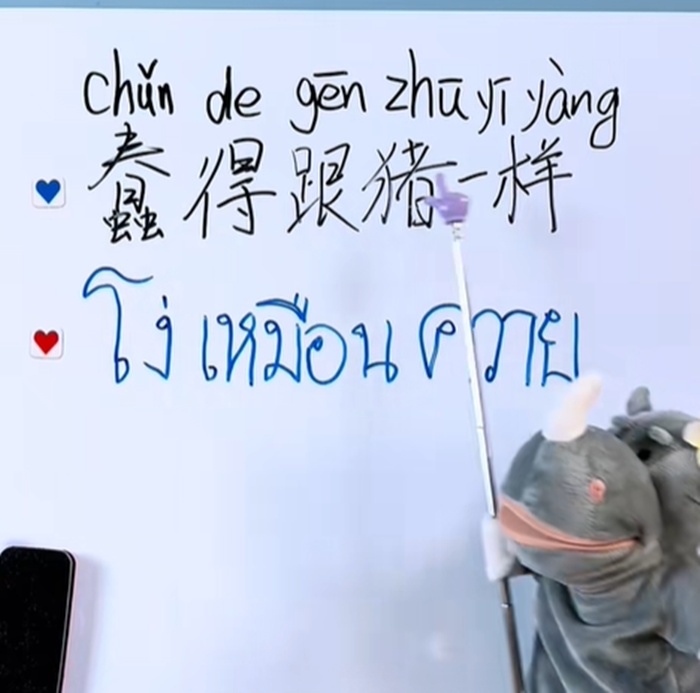 chǔn de gēn zhū yī yàng
蠢得跟猪一样
โง่เหมือนควาย